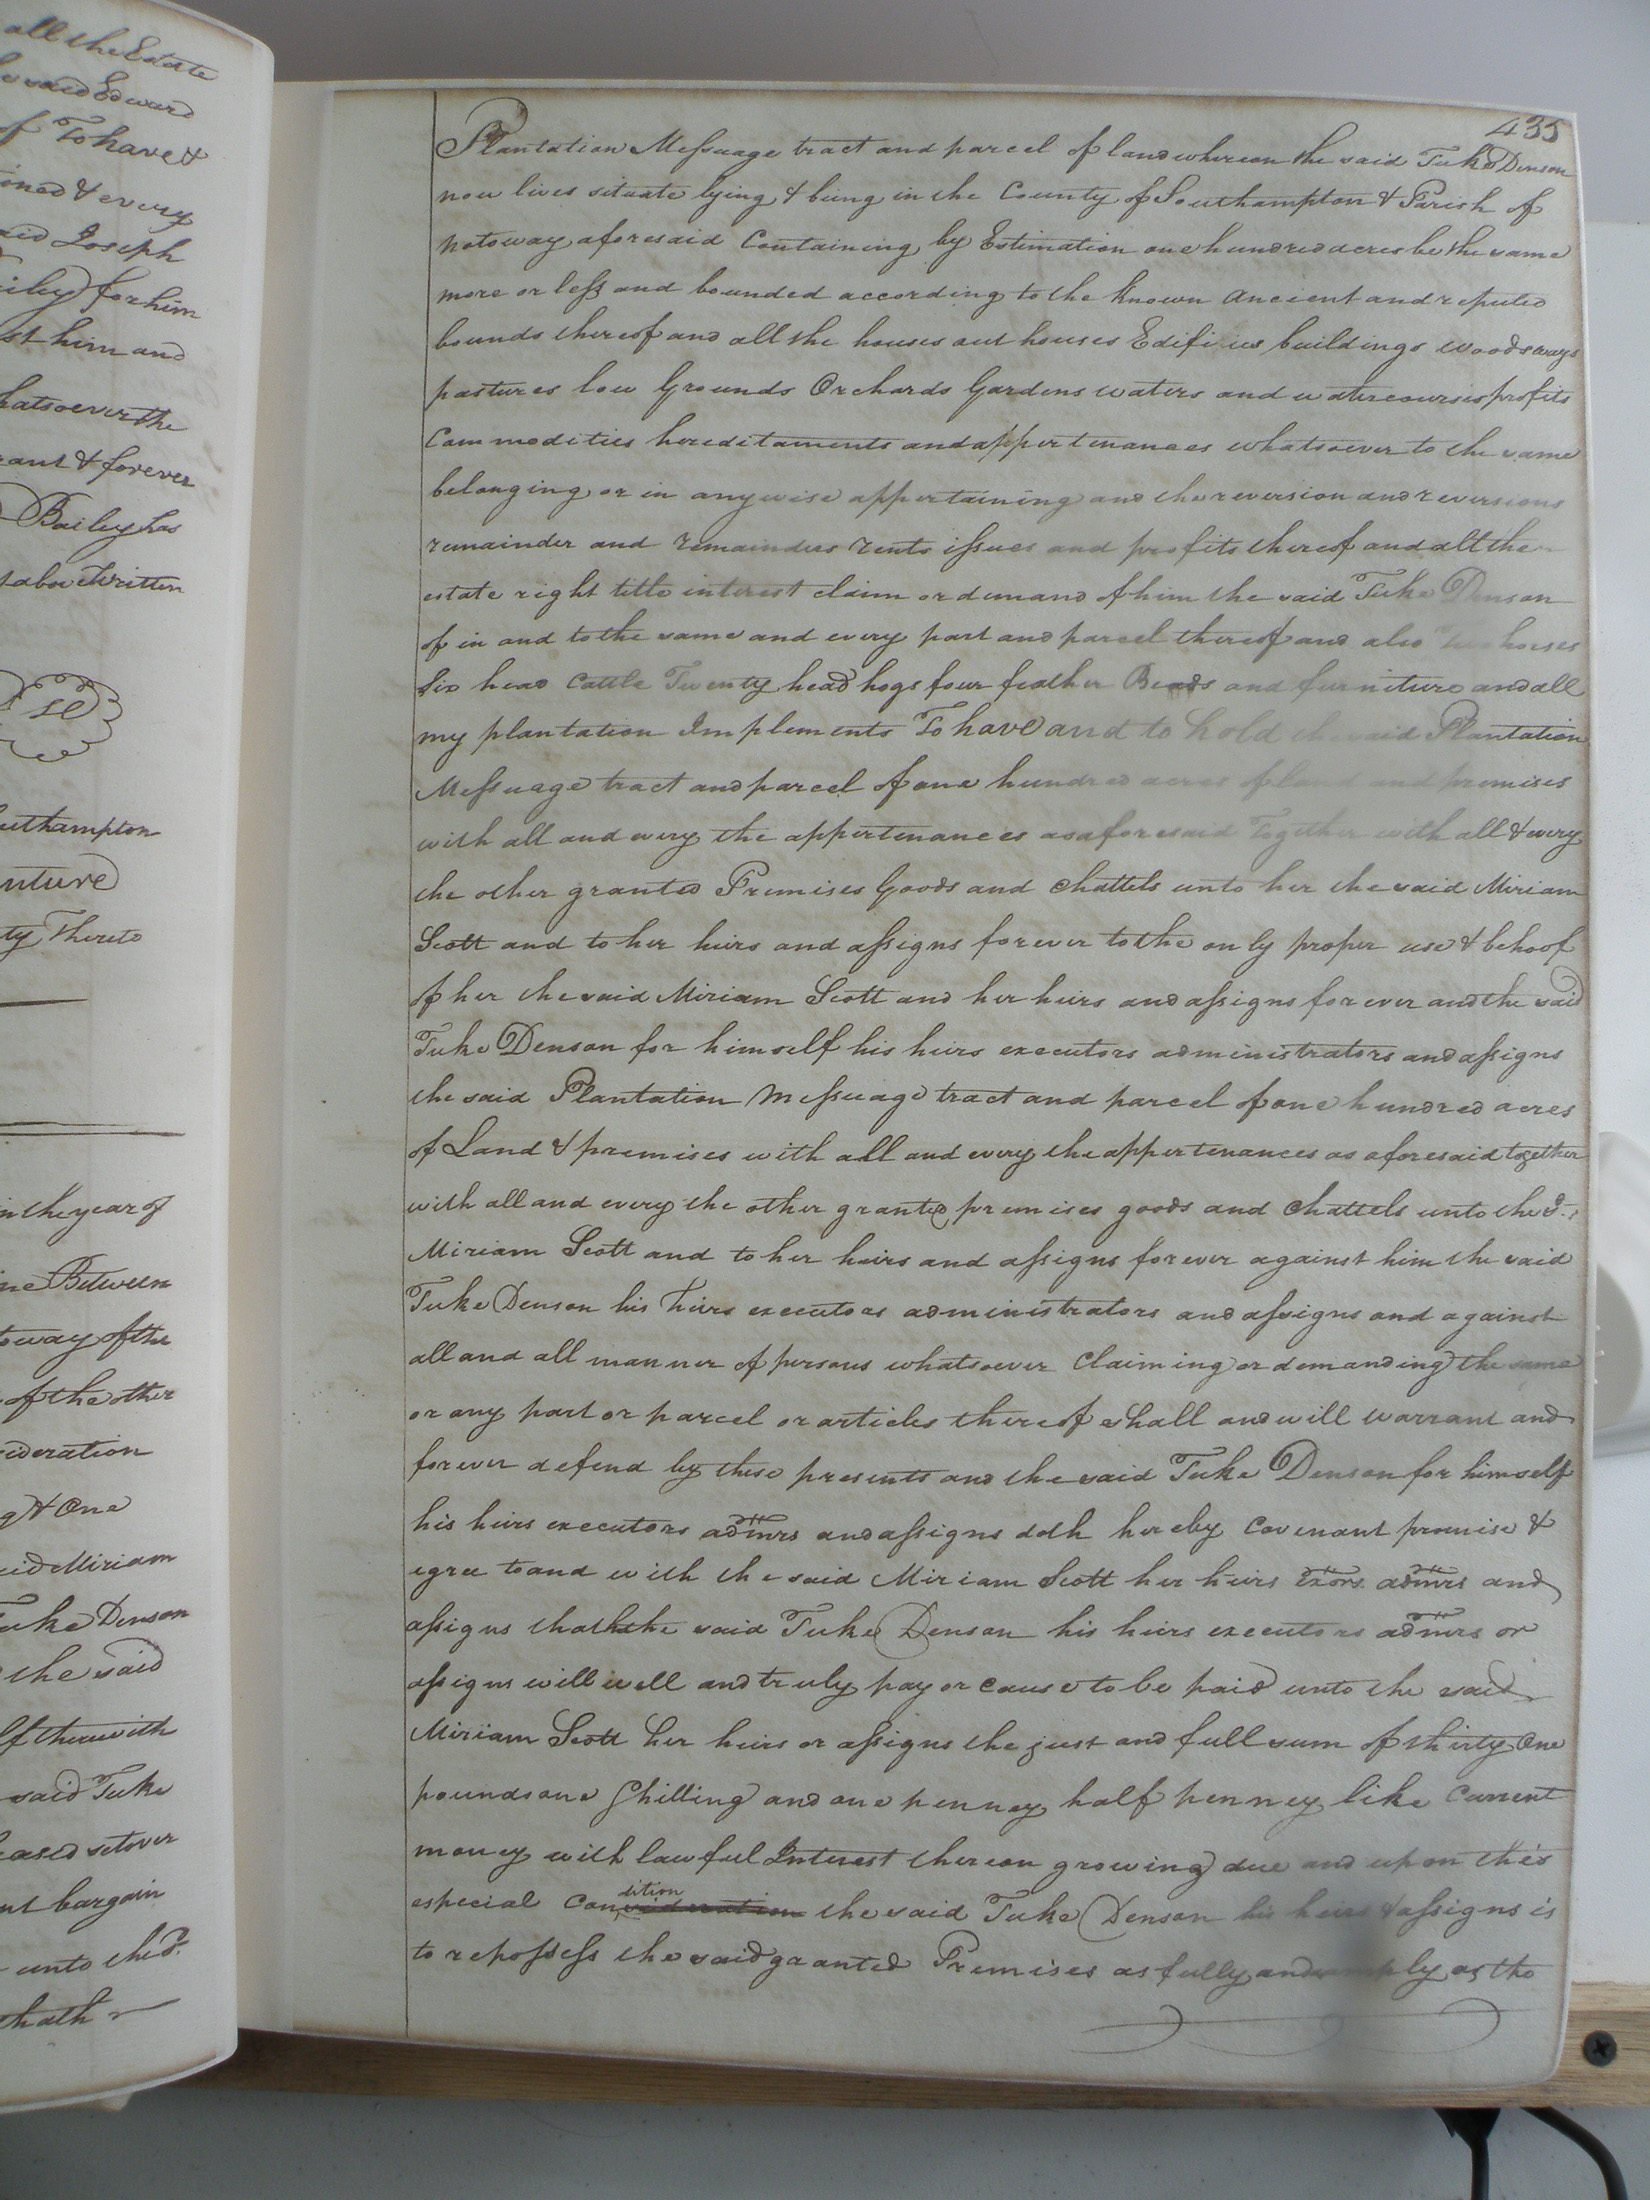 all the Estate
said Edward
of To have &
oned & every
aid Joseph
iley for him
st him and
hatsoever the
rant & forever
Bailey has
above Written
uthampton
nture
ty Thereto
in the year of
ne Between
toway of the
of the other
sideration
g & One
aid Miriam
Tuke Denson
the said
lf therewith
said Tuke
eased set over
nt bargain
unto the sd.
hath
435
Plantation Messuage tract and parcel of land whereon the said Tuke Denson
now lives situate lying & being in the County of Southampton & Parish of
Notoway aforesaid Containing by Estimation one hundred acres be the same
more or less and bounded according to the known ancient and reputed
bounds thereof and all the houses out houses Edifices buildings woods ways
pastures low Grounds Orchards Gardens waters and watercourses profits
Commodities hereditaments and appertenances whatsoever to the same
belonging or in any wise appertaining and the reversion and reversions
remainder and remainders rents issues and profits thereof and all the
estate right title interest claim or demand of him the said Tuke Denson
of in and to the same and every part and parcel thereof and also two horses
Six head Cattle Twenty head hogs four feather Beads and furniture and all
my plantation Implements To have and to hold the said Plantation
Messuage tract and parcel of one hundred acres of land and premises
with all and every the appertenances as aforesaid Together with all & every
the other granted Premises Goods and Chattels unto her the said Miriam
Scott and to her heirs and assigns forever to the only proper use & behoof
of her the said Miriam Scott and her heirs and assigns for ever and the said
Tuke Denson for himself his heirs executors administrators and assigns
the said Plantation Messuage tract and parcel of one hundred acres
of Land & premises with all and every the appertenances as aforesaid together
with all and every the other granted premises goods and Chattels unto the sd.
Miriam Scott and to her heirs and assigns for ever against him the said
Tuke Denson his heirs executors administrators and assigns and against
all and all manner of persons whatsoever Claiming or demanding the same
or any part or parcel or articles thereof shall and will warrant and
forever defend by these presents and the said Tuke Denson for himself
his heirs executors admrs and assigns doth hereby Covenant promise &
agree to and with the said Miriam Scott her heirs exors. admrs and
assigns that the said Tuke Denson his heirs executors admrs or
assigns will well and truly pay or cause to be paid unto the said
Miriam Scott her heirs or assigns the just and full sum of thirty One
pounds one Shilling and one penney half penney like Current
money with lawful Interest thereon growing due and upon this
especial Condition the said Tuke Denson his heirs & assigns is
to repossess the said gaanted Premises as fully and amply as tho